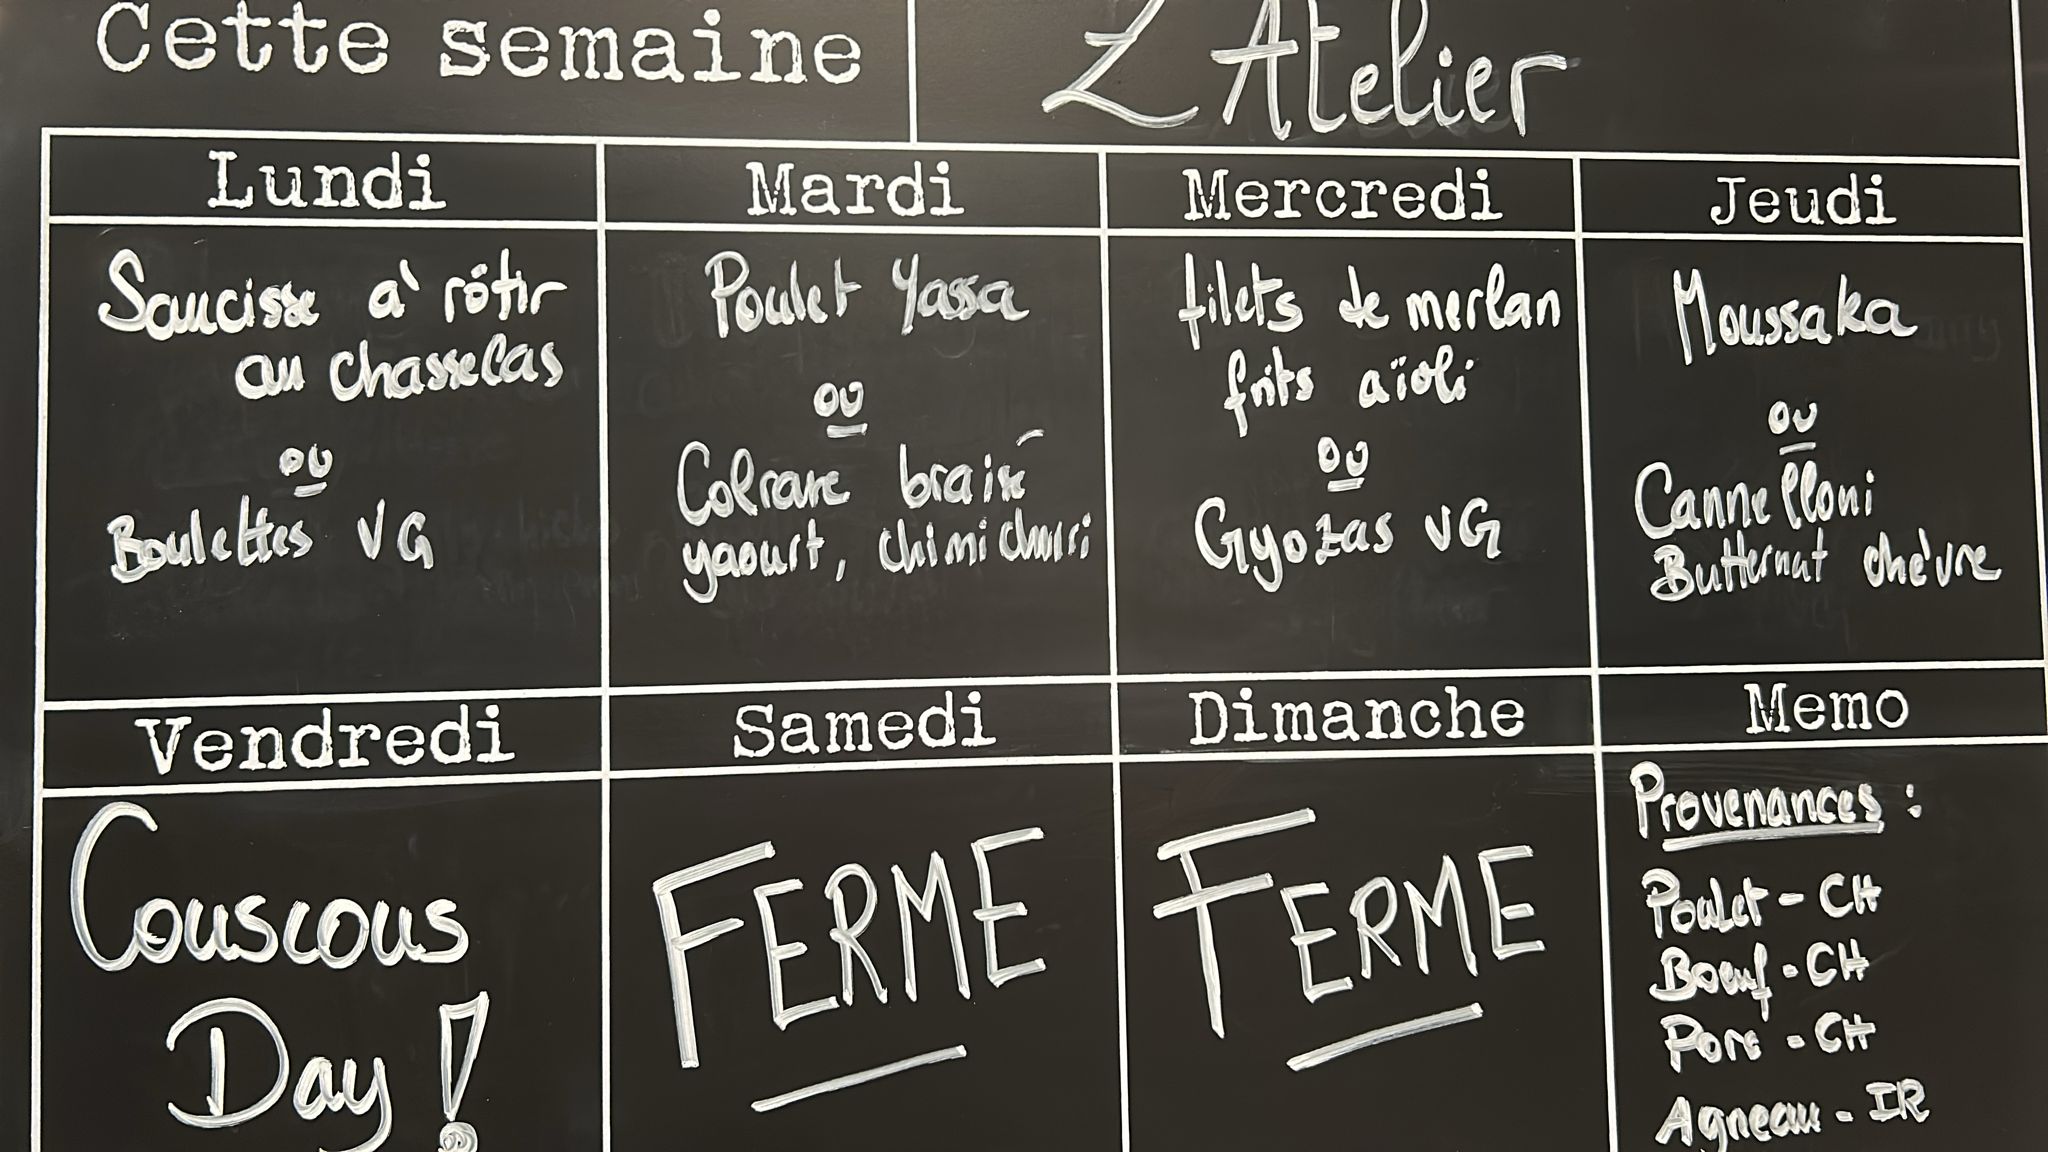 Cette semaine
L'Atelier
Lundi
Saucisse à rôtir
au chasselas
ou
Boulettes VG
Mardi
Poulet Yassa
ou
Colrave braisé
yaourt, chimichurri
Mercredi
filets de merlan
frits aïoli
ou
Gyozas VG
Jeudi
Moussaka
ou
Cannelloni
Butternut chèvre
Vendredi
Couscous
Day !
Samedi
FERME
Dimanche
FERME
Memo
Provenances :
Poulet - CH
Boeuf - CH
Porc - CH
Agneau - IR